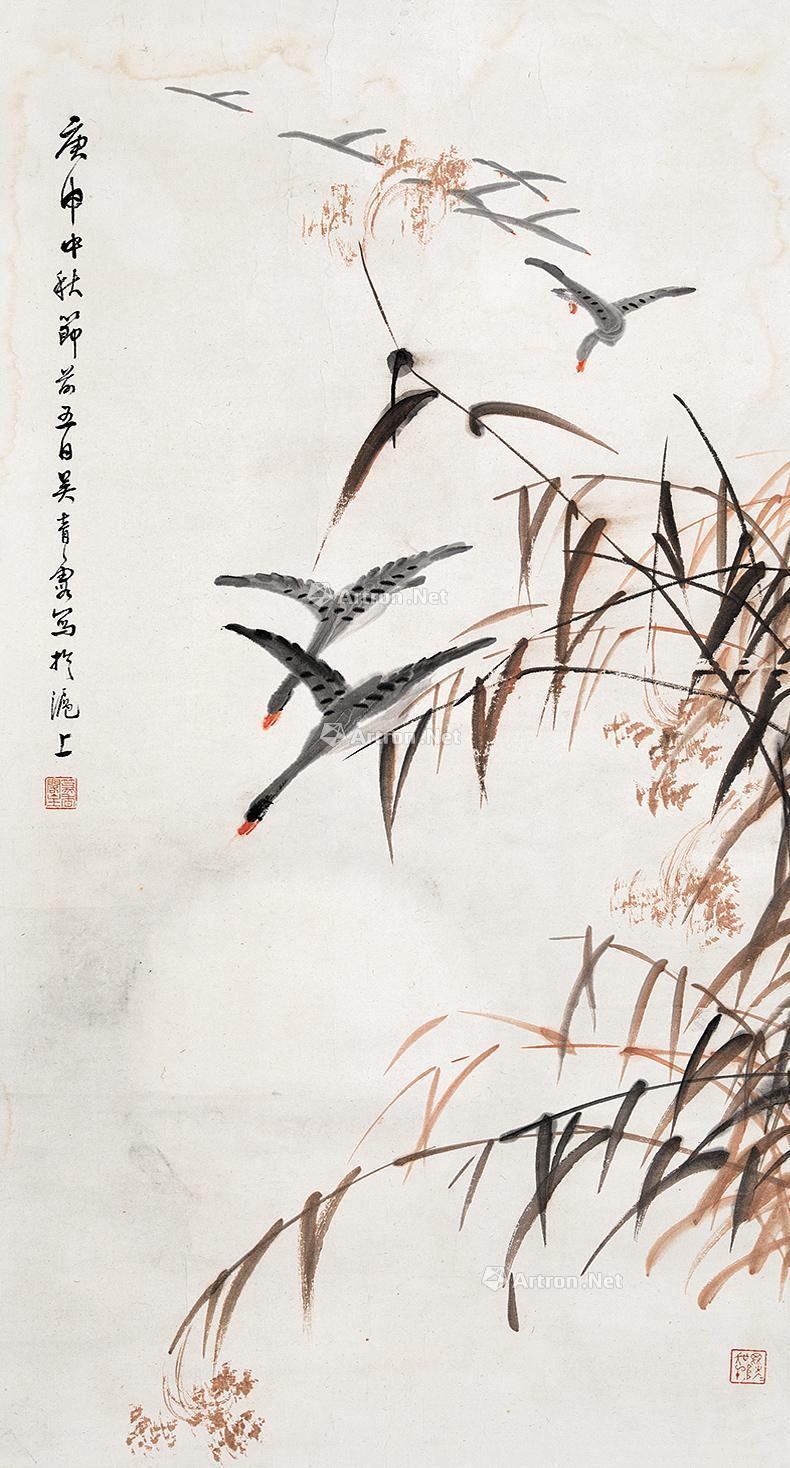 庚申中秋節前五日吴青霞写於滬上
Artron.Net
Artron.Net
Artron.Net